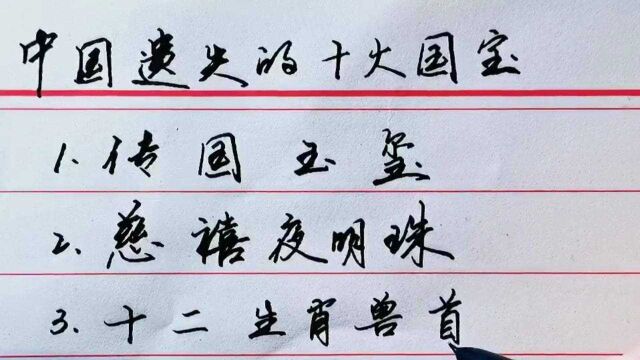 中国遗失的十大国宝
1.传国玉玺
2.慈禧夜明珠
3.十二生肖兽首